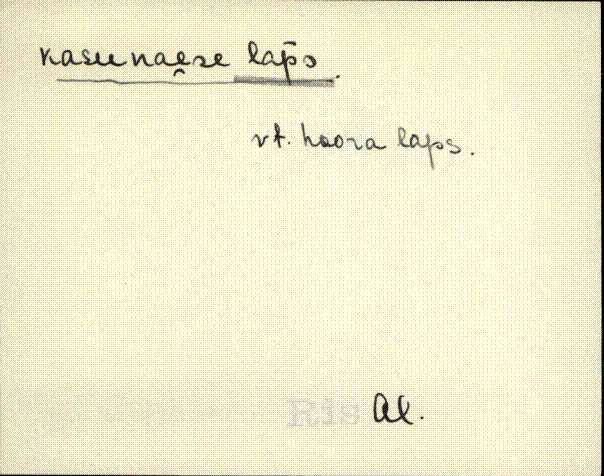 kasu naese lap̄s.
vt. hoora laps.
Ris Al.